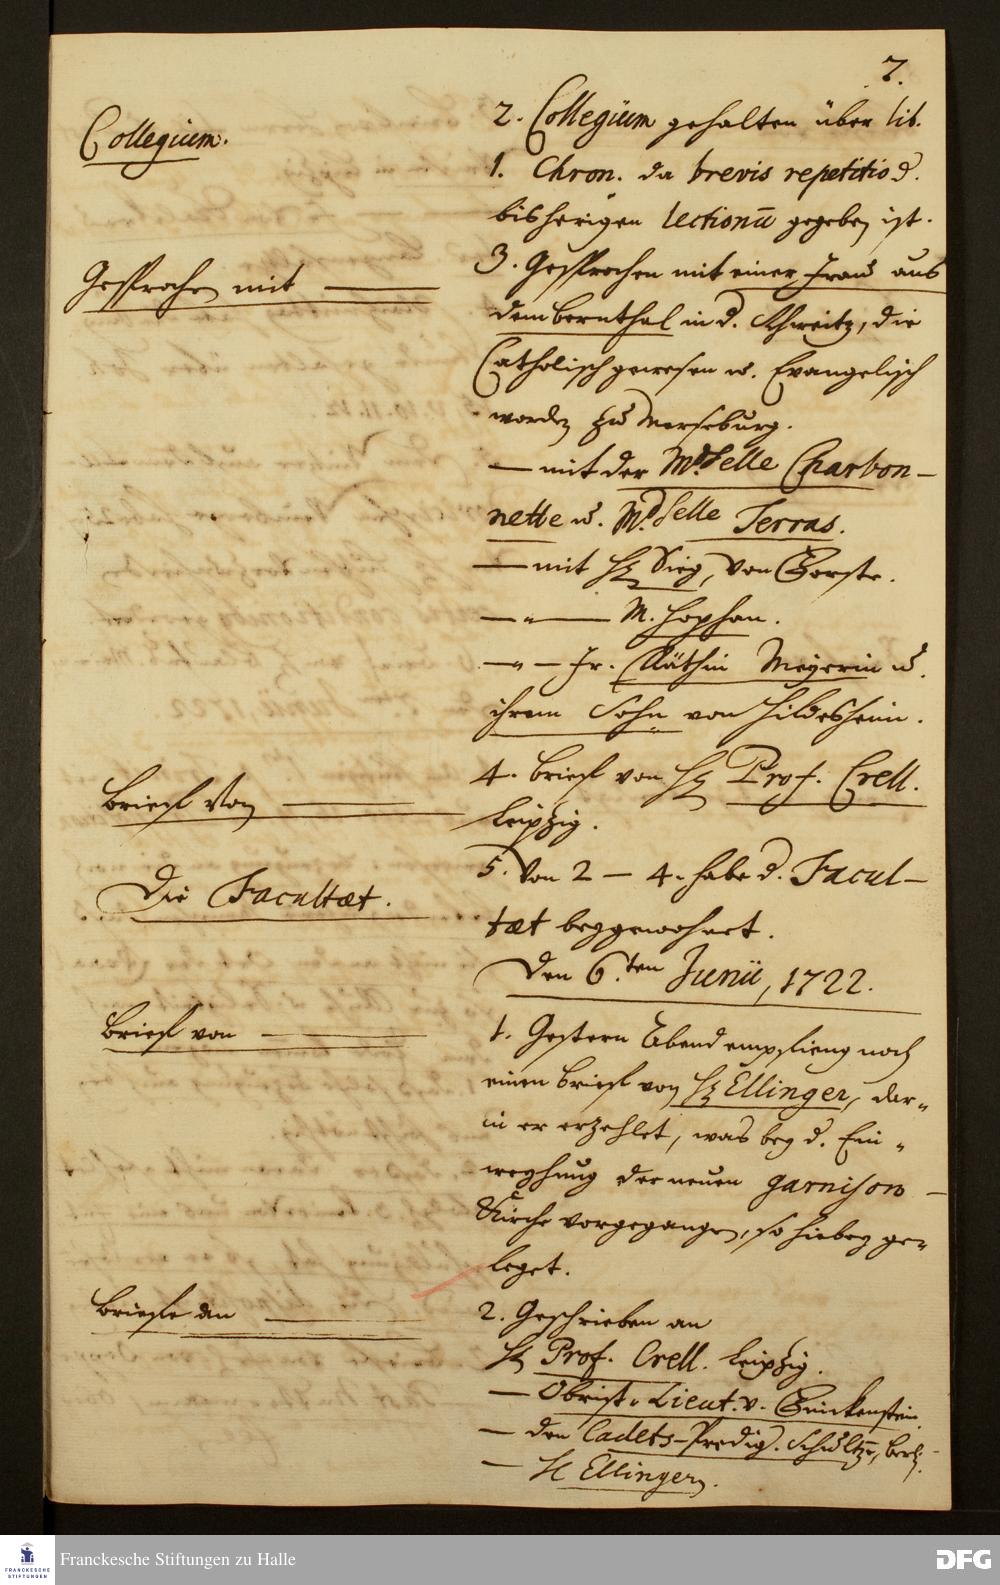 7.
Collegium.
2. Collegium gehalten über lib.
1. Chron. da brevis repetitio d.
bisherigen lectionū gegeben ist.
Gesprochen mit
3. Gesprochen mit einer Frau aus
dem Bernthal in d. Schweitz, die
Catholisch gewesen u. Evangelisch
worden zu Merseburg.
— mit der Mdselle Charbon-
nette u. Mdselle Terras.
— mit H Sieg, von
— " — M. Hophan.
— " — Fr. Räthin Meyerin u.
ihrem Sohn von Hildesheim.
Brieff von
4. Brieff von H Prof. Crell.
Leipzig.
Die Facultæt.
5. Von 2 — 4. habe d. Facul-
tæt beygewohnet.
Den 6.ten Junii, 1722.
Brieff von
1. Gestern Abend empfieng noch
einen Brieff von H Ellinger, dar-
in er erzehlet, was bey d. Ein-
weyhung der neuen garnison-
Kirche vorgegangen, so hiebey ge-
leget.
Brieffe an
2. Geschrieben an
H Prof. Crell. Leipzig.
— Obrist-Lieut. v.
— den Cadets-Predig. Schultze, Berl.
— H Ellingern.
FRANCKESCHE
STIFTUNGEN
Franckesche Stiftungen zu Halle
DFG